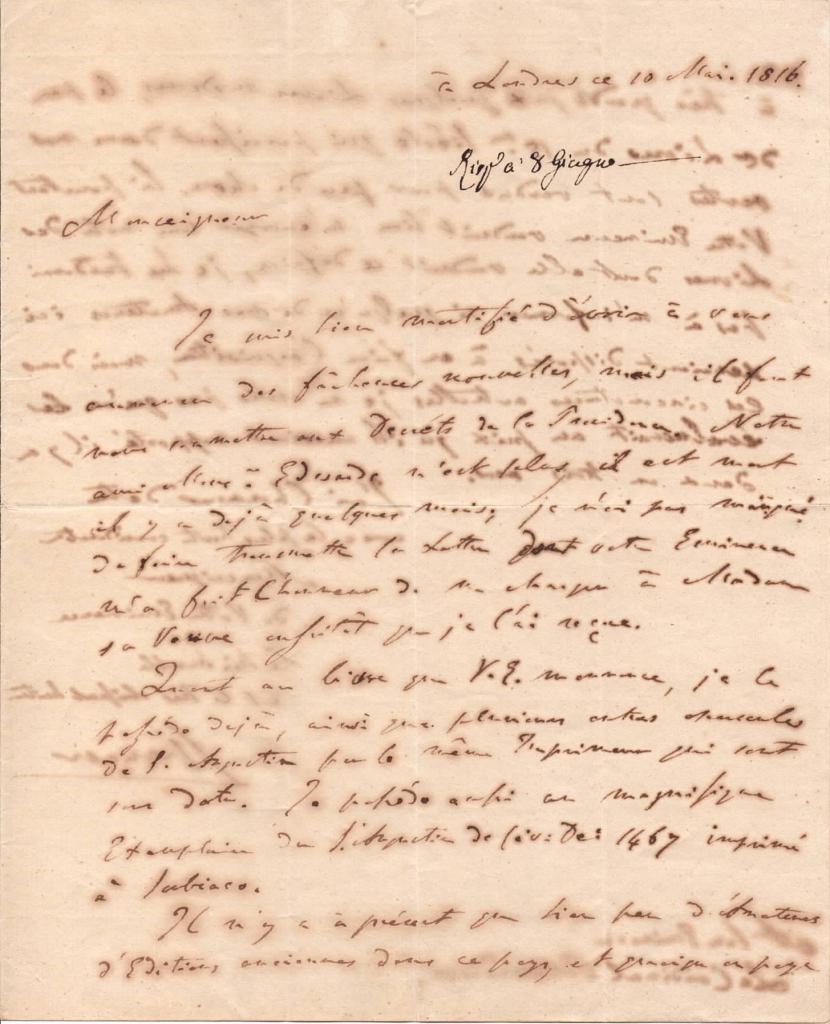 à Londres ce 10 Mai. 1816.
Risp.a a' 8 Giugno
Monseigneur
Je suis bien mortifié d'avoir à vous
annoncer des fâcheuses nouvelles, mais il faut
nous soumettre aux Decréts de la Providence. Notre
ami n'est plus, il est mort
il y a dejà quelques mois, je n'ai pas manqué
de faire transmettre la Lettre dont votre Eminence
m'a fait l'honneur de me charger à Madame
sa Veuve aussitôt que je l'ai reçue.
Quant au livre que V.E. mentionne, je le
possédo dejà, ainsi que plusieurs autres opuscules
de S. Augustin par le même Imprimeur qui sont
sans Date. Je possédo aussi un magnifique
Exemplaire du S. Augustin de Civ: Dei 1467 imprimé
à Subiaco.
Il n'y a à présent que bien peu d'Amateurs
d'Editions anciennes dans ce pays, et quoique on paye